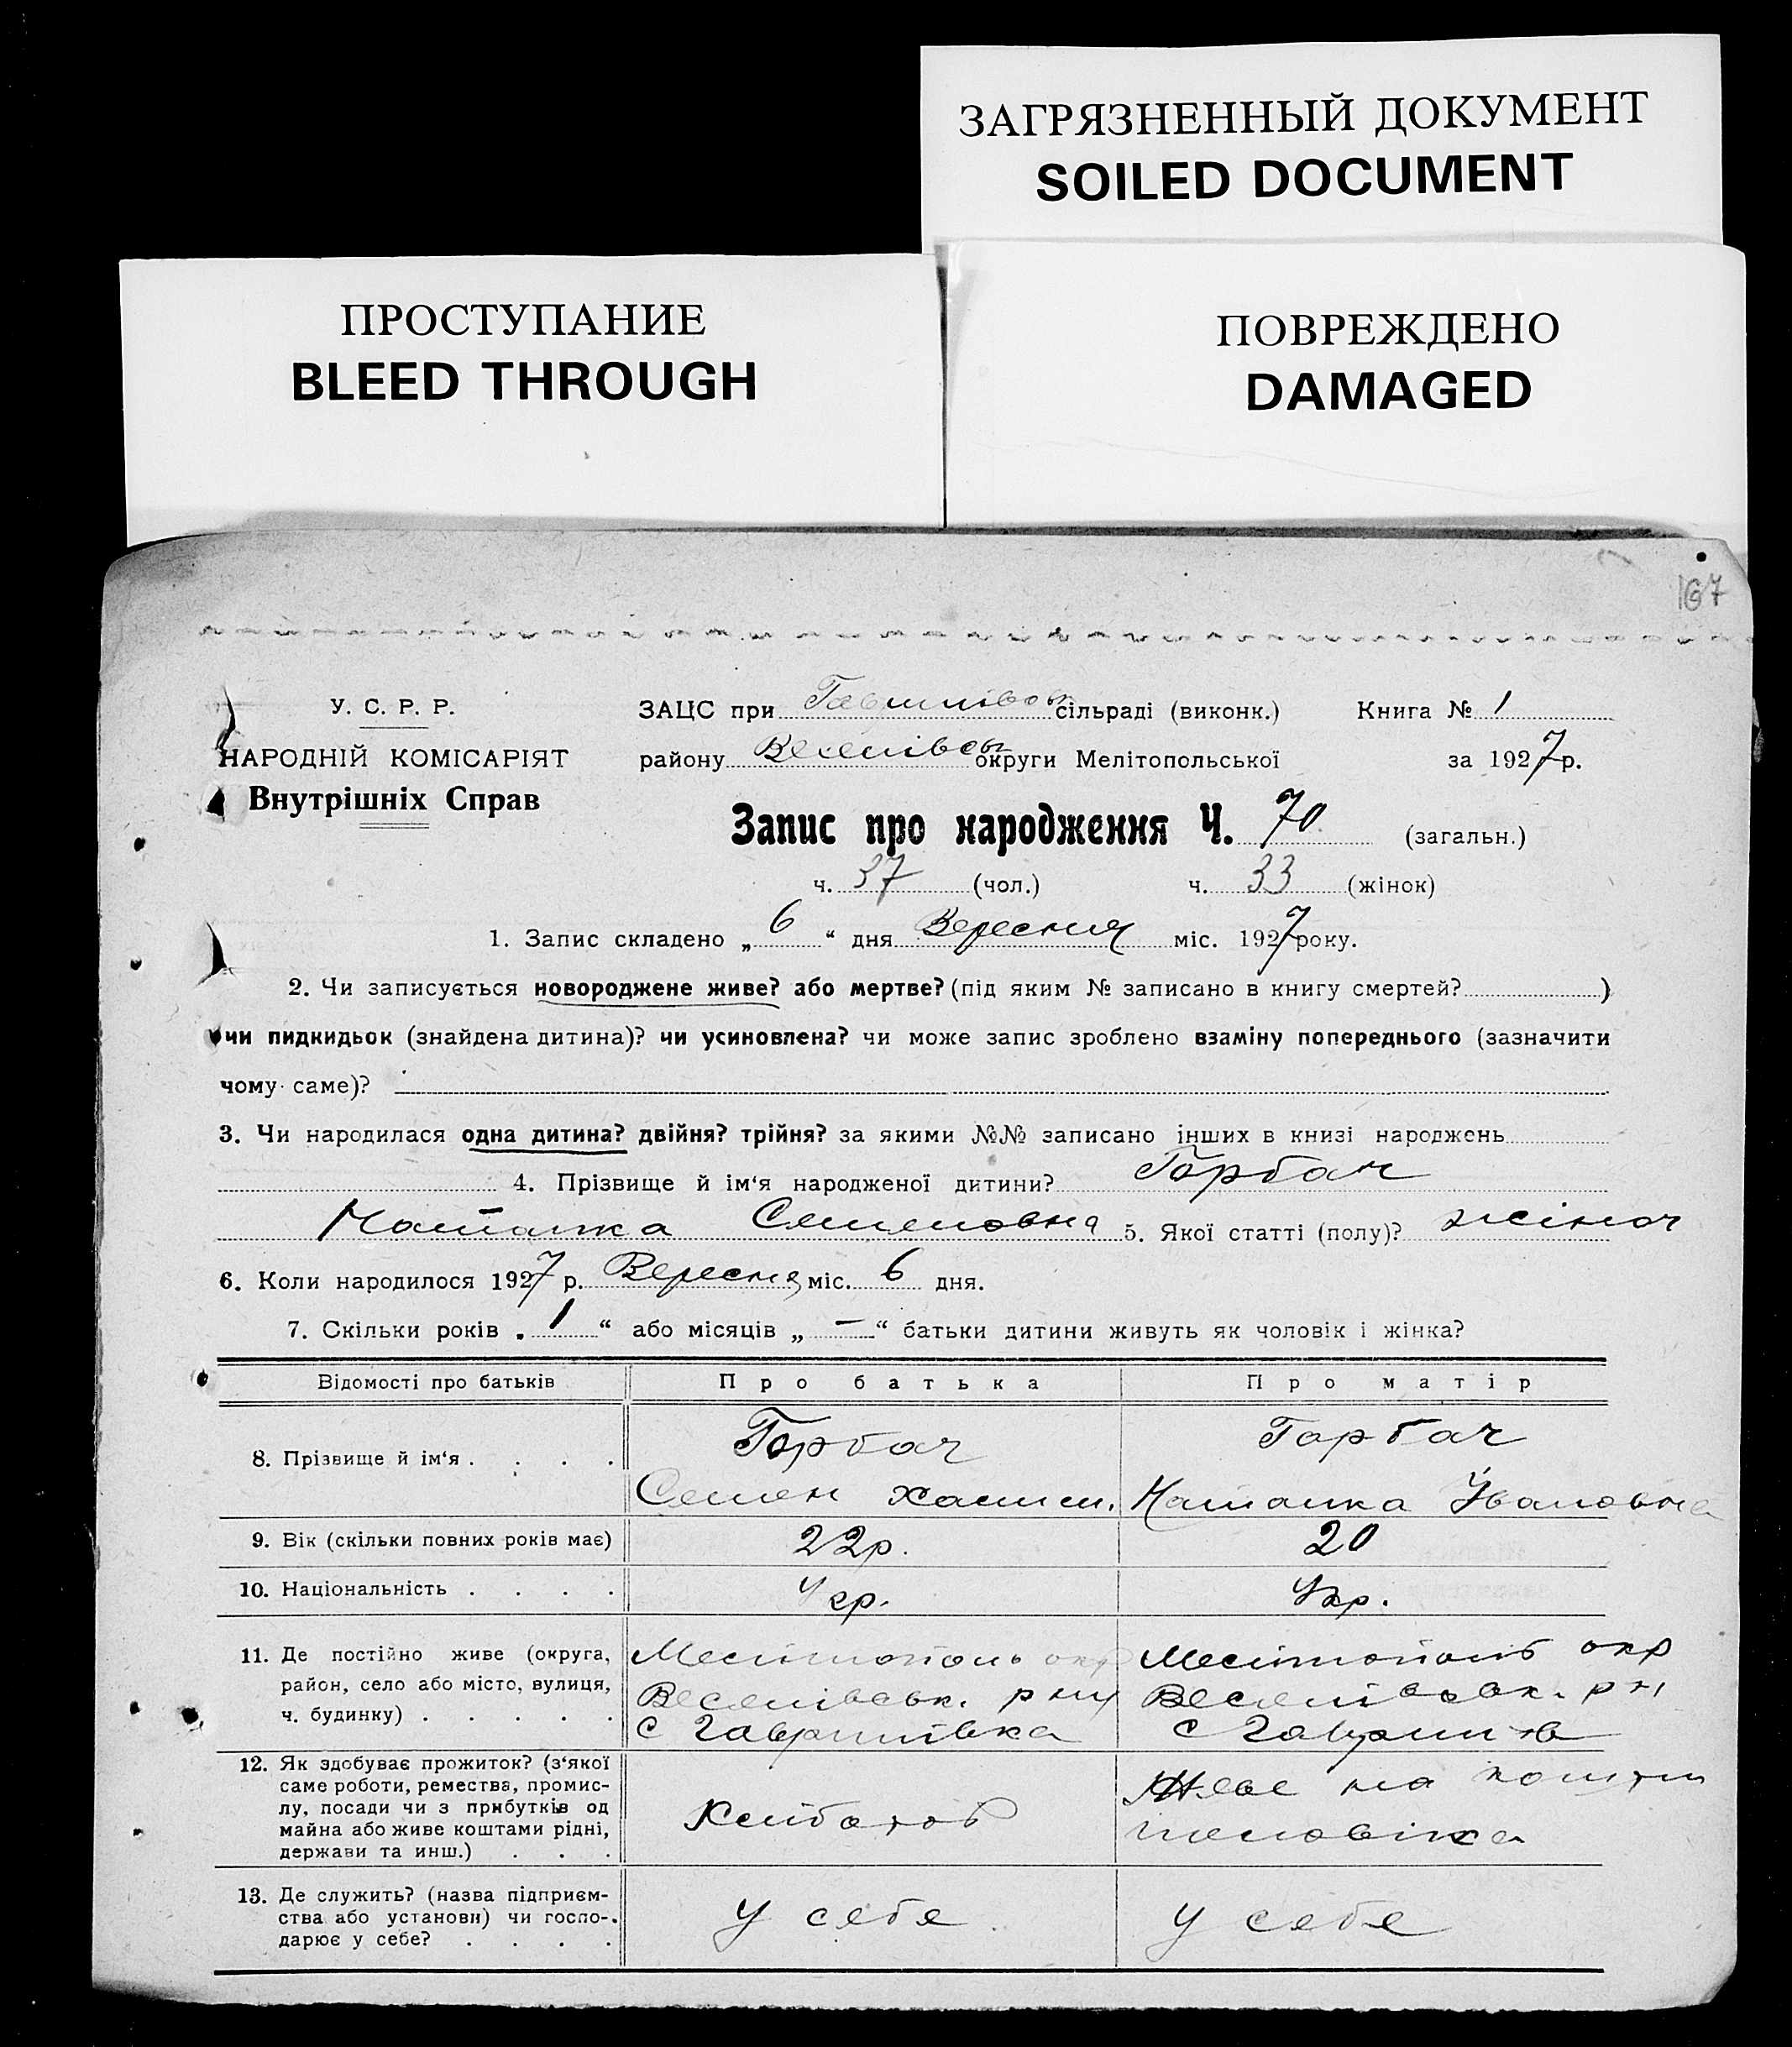 ЗАГРЯЗНЕННЫЙ ДОКУМЕНТ
SOILED DOCUMENT
ПРОСТУПАНИЕ
BLEED THROUGH
ПОВРЕЖДЕНО
DAMAGED
167
У. С. Р. Р.
НАРОДНІЙ КОМІСАРІЯТ
Внутрішніх Справ
ЗАЦС при Гаврилівськ сільраді (виконк.) Книга № 1
району Веселівськ округи Мелітопольської за 1927 р.
Запис про народження Ч. 70 (загальн.)
ч. 37 (чол.) ч. 33 (жінок)
1. Запис складено „ 6 “ дня Вересня міс. 1927 року.
2. Чи записується новороджене живе? або мертве? (під яким № записано в книгу смертей? )
чи пидкидьок (знайдена дитина)? чи усиновлена? чи може запис зроблено взаміну попереднього (зазначити
чому саме)?
3. Чи народилася одна дитина? двійня? трійня? за якими №№ записано інших в книзі народжень
4. Прізвище й ім‘я народженої дитини? Горбач
Наталка Семеновна 5. Якої статті (полу)? жіноч
6. Коли народилося 1927 р. Вересня міс. 6 дня.
7. Скільки років „ 1 “ або місяців „ — “ батьки дитини живуть як чоловік і жінка?
Відомості про батьків Про батька Про матір
8. Прізвище й ім‘я . . . . Горбач Горбач
Семен Наталка Івановна
9. Вік (скільки повних років має) 22р. 20
10. Національність . . . . Укр. Укр.
11. Де постійно живе (округа, Мелітополь окр Мелітополь окр
район, село або місто, вулиця, Веселівськ. р-ну Веселівськ. р-н
ч. будинку) . . . . . с Гаврилівка с Гаврилів
12. Як здобуває прожиток? (з‘якої
саме роботи, ремества, промис-
лу, посади чи з прибутків од
майна або живе коштами рідні,
держави та инш.) . . .
Хлібороб
Живе на кошти
чоловіка
13. Де служить? (назва підприєм-
ства або установи) чи госпо-
дарює у себе? . . . .
У себе У себе